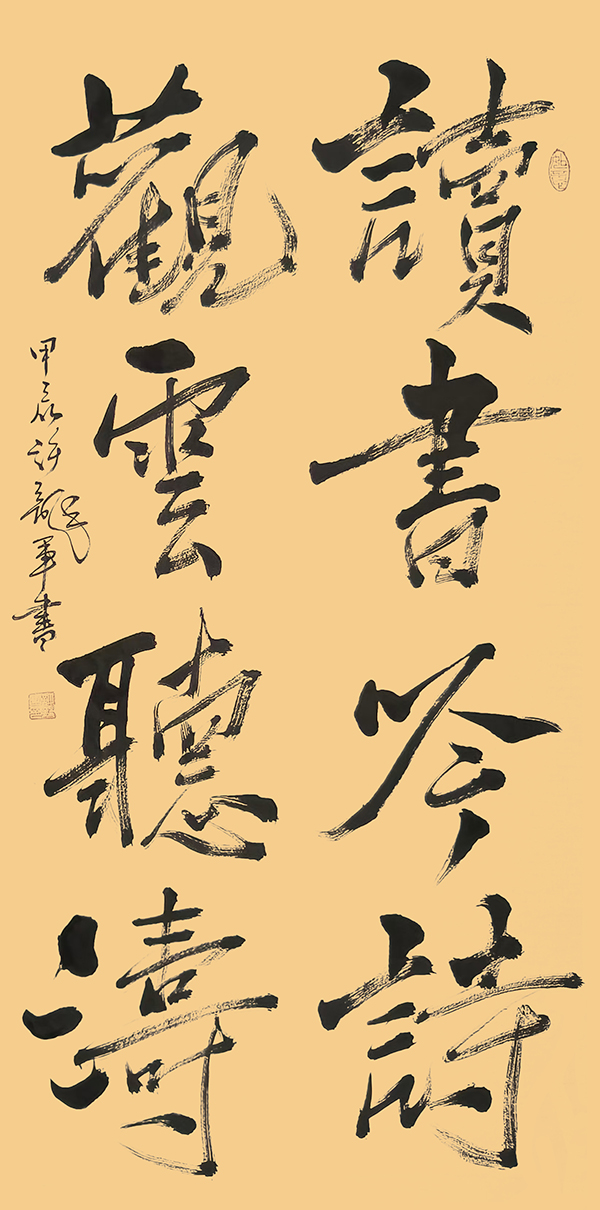 讀書吟詩
觀雲聽濤
甲辰許龍軍書